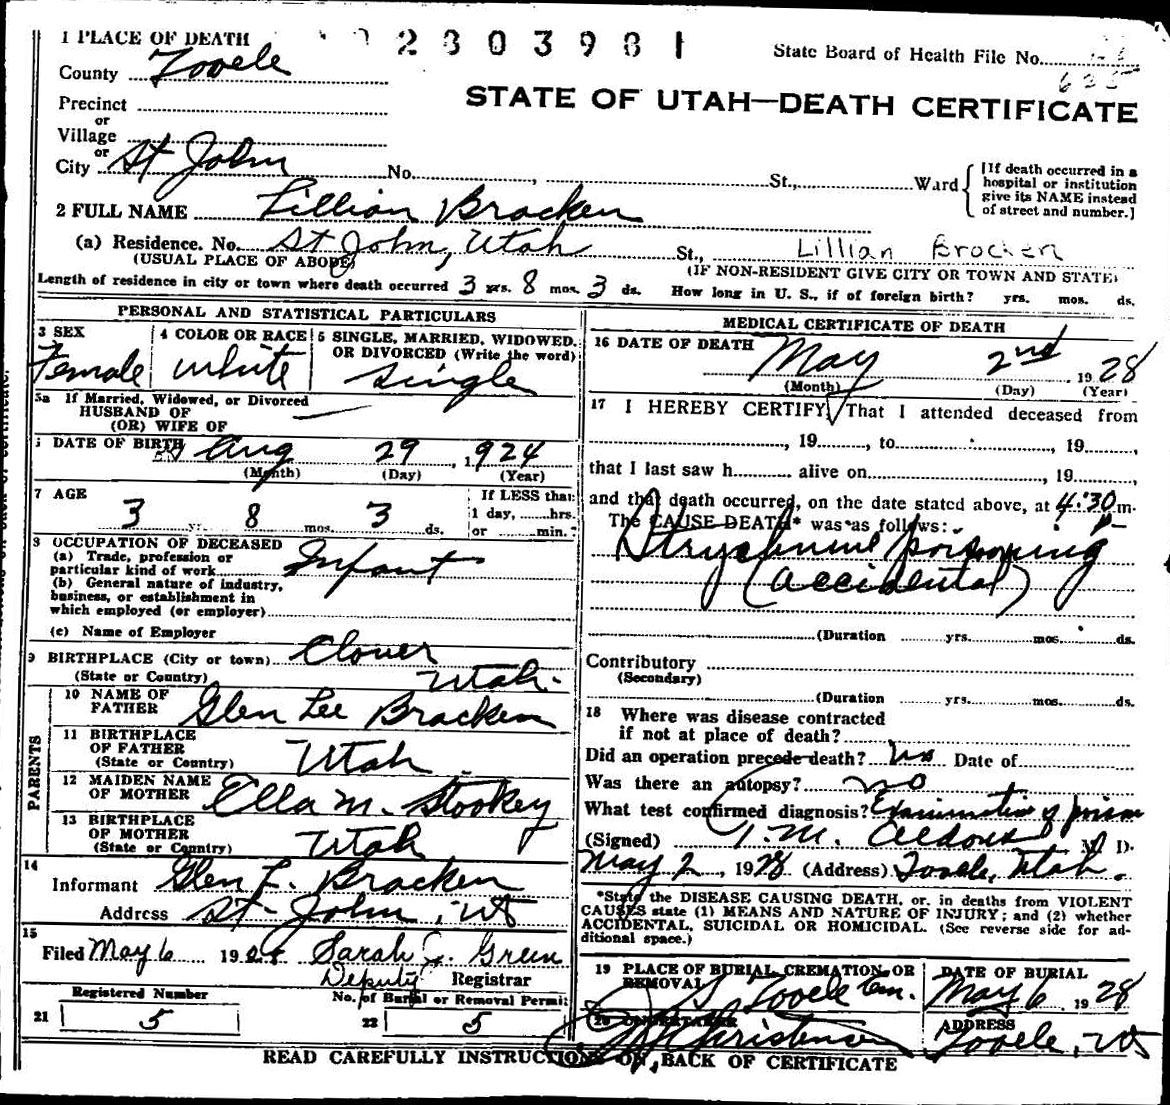 1 PLACE OF DEATH
2803981
State Board of Health File No.
635
County Tooele
STATE OF UTAH—DEATH CERTIFICATE
Precinct
or
Village
or
City St John No. , St., Ward
[If death occurred in a hospital or institution give its NAME instead of street and number.]
2 FULL NAME Lillian Bracken
(a) Residence. No. St John, Utah St., Lillian Brocken
(USUAL PLACE OF ABODE) (IF NON-RESIDENT GIVE CITY OR TOWN AND STATE)
Length of residence in city or town where death occurred 3 yrs. 8 mos. 3 ds. How long in U. S., if of foreign birth? yrs. mos. ds.
PERSONAL AND STATISTICAL PARTICULARS
3 SEX Female
4 COLOR OR RACE White
5 SINGLE, MARRIED, WIDOWED, OR DIVORCED (Write the word) Single
5a If Married, Widowed, or Divorced
HUSBAND OF
(OR) WIFE OF
DATE OF BIRTH Aug 29, 1924
(Month) (Day) (Year)
7 AGE 3 yr. 8 mos. 3 ds.
If LESS than 1 day, hrs. or min.
8 OCCUPATION OF DECEASED
(a) Trade, profession or particular kind of work Infant
(b) General nature of industry, business, or establishment in which employed (or employer)
(c) Name of Employer
9 BIRTHPLACE (City or town) Clover
(State or Country) Utah.
PARENTS
10 NAME OF FATHER Glen Lee Bracken
11 BIRTHPLACE OF FATHER (State or Country) Utah
12 MAIDEN NAME OF MOTHER Ella M. Stookey
13 BIRTHPLACE OF MOTHER (State or Country) Utah
14
Informant Glen L. Bracken
Address St. John, Ut
15
Filed May 6 1928 Sarah J. Green
Deputy Registrar
Registered Number
21 5
No. of Burial or Removal Permit
22 5
MEDICAL CERTIFICATE OF DEATH
16 DATE OF DEATH May 2nd, 1928
(Month) (Day) (Year)
17 I HEREBY CERTIFY, That I attended deceased from
, 19 , to , 19 ,
that I last saw h alive on , 19 ,
and that death occurred, on the date stated above, at 4:30 P m.
The CAUSE DEATH* was as follows:
Strychnine poisoning
(accidental)
(Duration yrs. mos. ds.
Contributory
(Secondary)
(Duration yrs. mos. ds.
18 Where was disease contracted
if not at place of death?
Did an operation precede death? No Date of
Was there an autopsy? no
What test confirmed diagnosis? Examination of poison
(Signed) T. M. Aldous M D.
May 2, 1928 (Address) Tooele, Utah.
*State the DISEASE CAUSING DEATH, or, in deaths from VIOLENT
CAUSES state (1) MEANS AND NATURE OF INJURY; and (2) whether
ACCIDENTAL, SUICIDAL OR HOMICIDAL. (See reverse side for additional space.)
19 PLACE OF BURIAL, CREMATION, OR REMOVAL Tooele Cem.
DATE OF BURIAL May 6 1928
20 UNDERTAKER Christensen
ADDRESS Tooele, Ut
READ CAREFULLY INSTRUCTIONS ON BACK OF CERTIFICATE